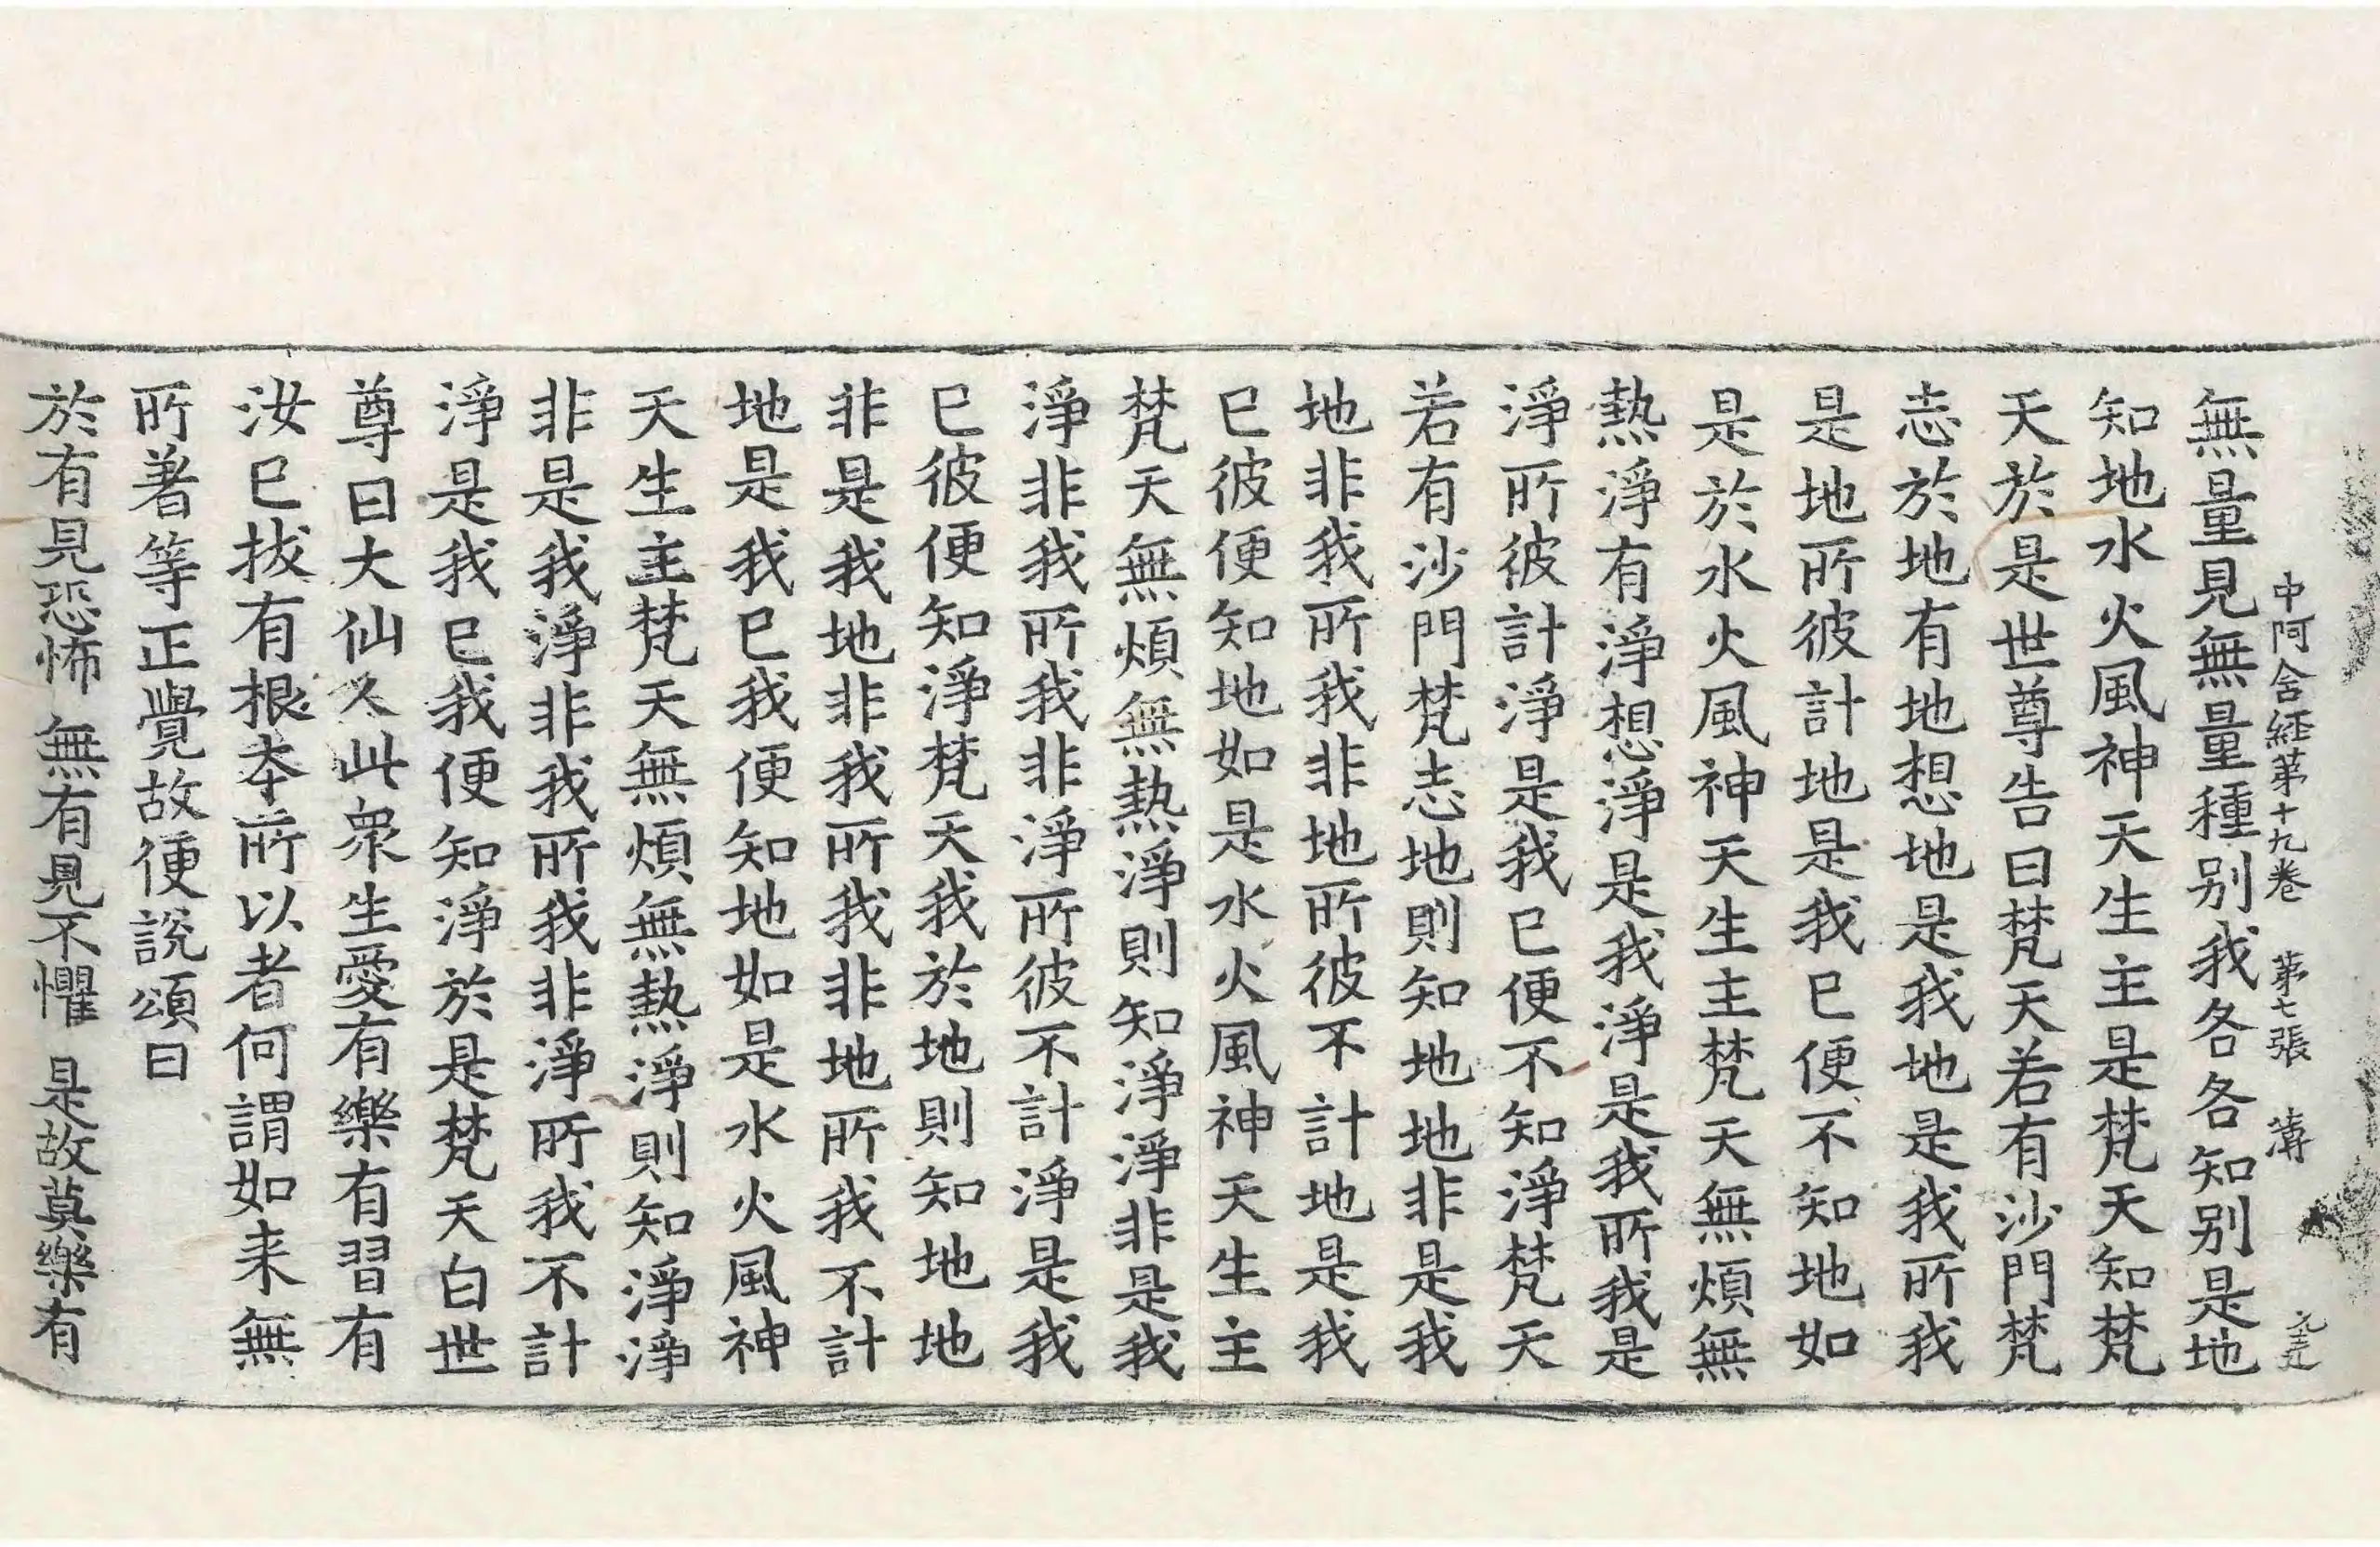 中阿含経苐十九卷 苐七張 薄
無量見無量種別我各各知別是地
知地水火風神天生主是梵天知梵
天於是世尊告曰梵天若有沙門梵
志於地有地想地是我地是我所我
是地所彼計地是我已便不知地如
是於水火風神天生主梵天無煩無
熱淨有淨想淨是我淨是我所我是
淨所彼計淨是我已便不知淨梵天
若有沙門梵志地則知地地非是我
地非我所我非地所彼不計地是我
已彼便知地如是水火風神天生主
梵天無煩無熱淨則知淨淨非是我
淨非我所我非淨所彼不計淨是我
已彼便知淨梵天我於地則知地地
非是我地非我所我非地所我不計
地是我已我便知地如是水火風神
天生主梵天無煩無熱淨則知淨淨
非是我淨非我所我非淨所我不計
淨是我已我便知淨於是梵天白世
尊曰大仙此眾生愛有樂有習有
汝已拔有根本所以者何謂如来無
所著等正覺故便說頌曰
於有見恐怖 無有見不懼 是故莫樂有